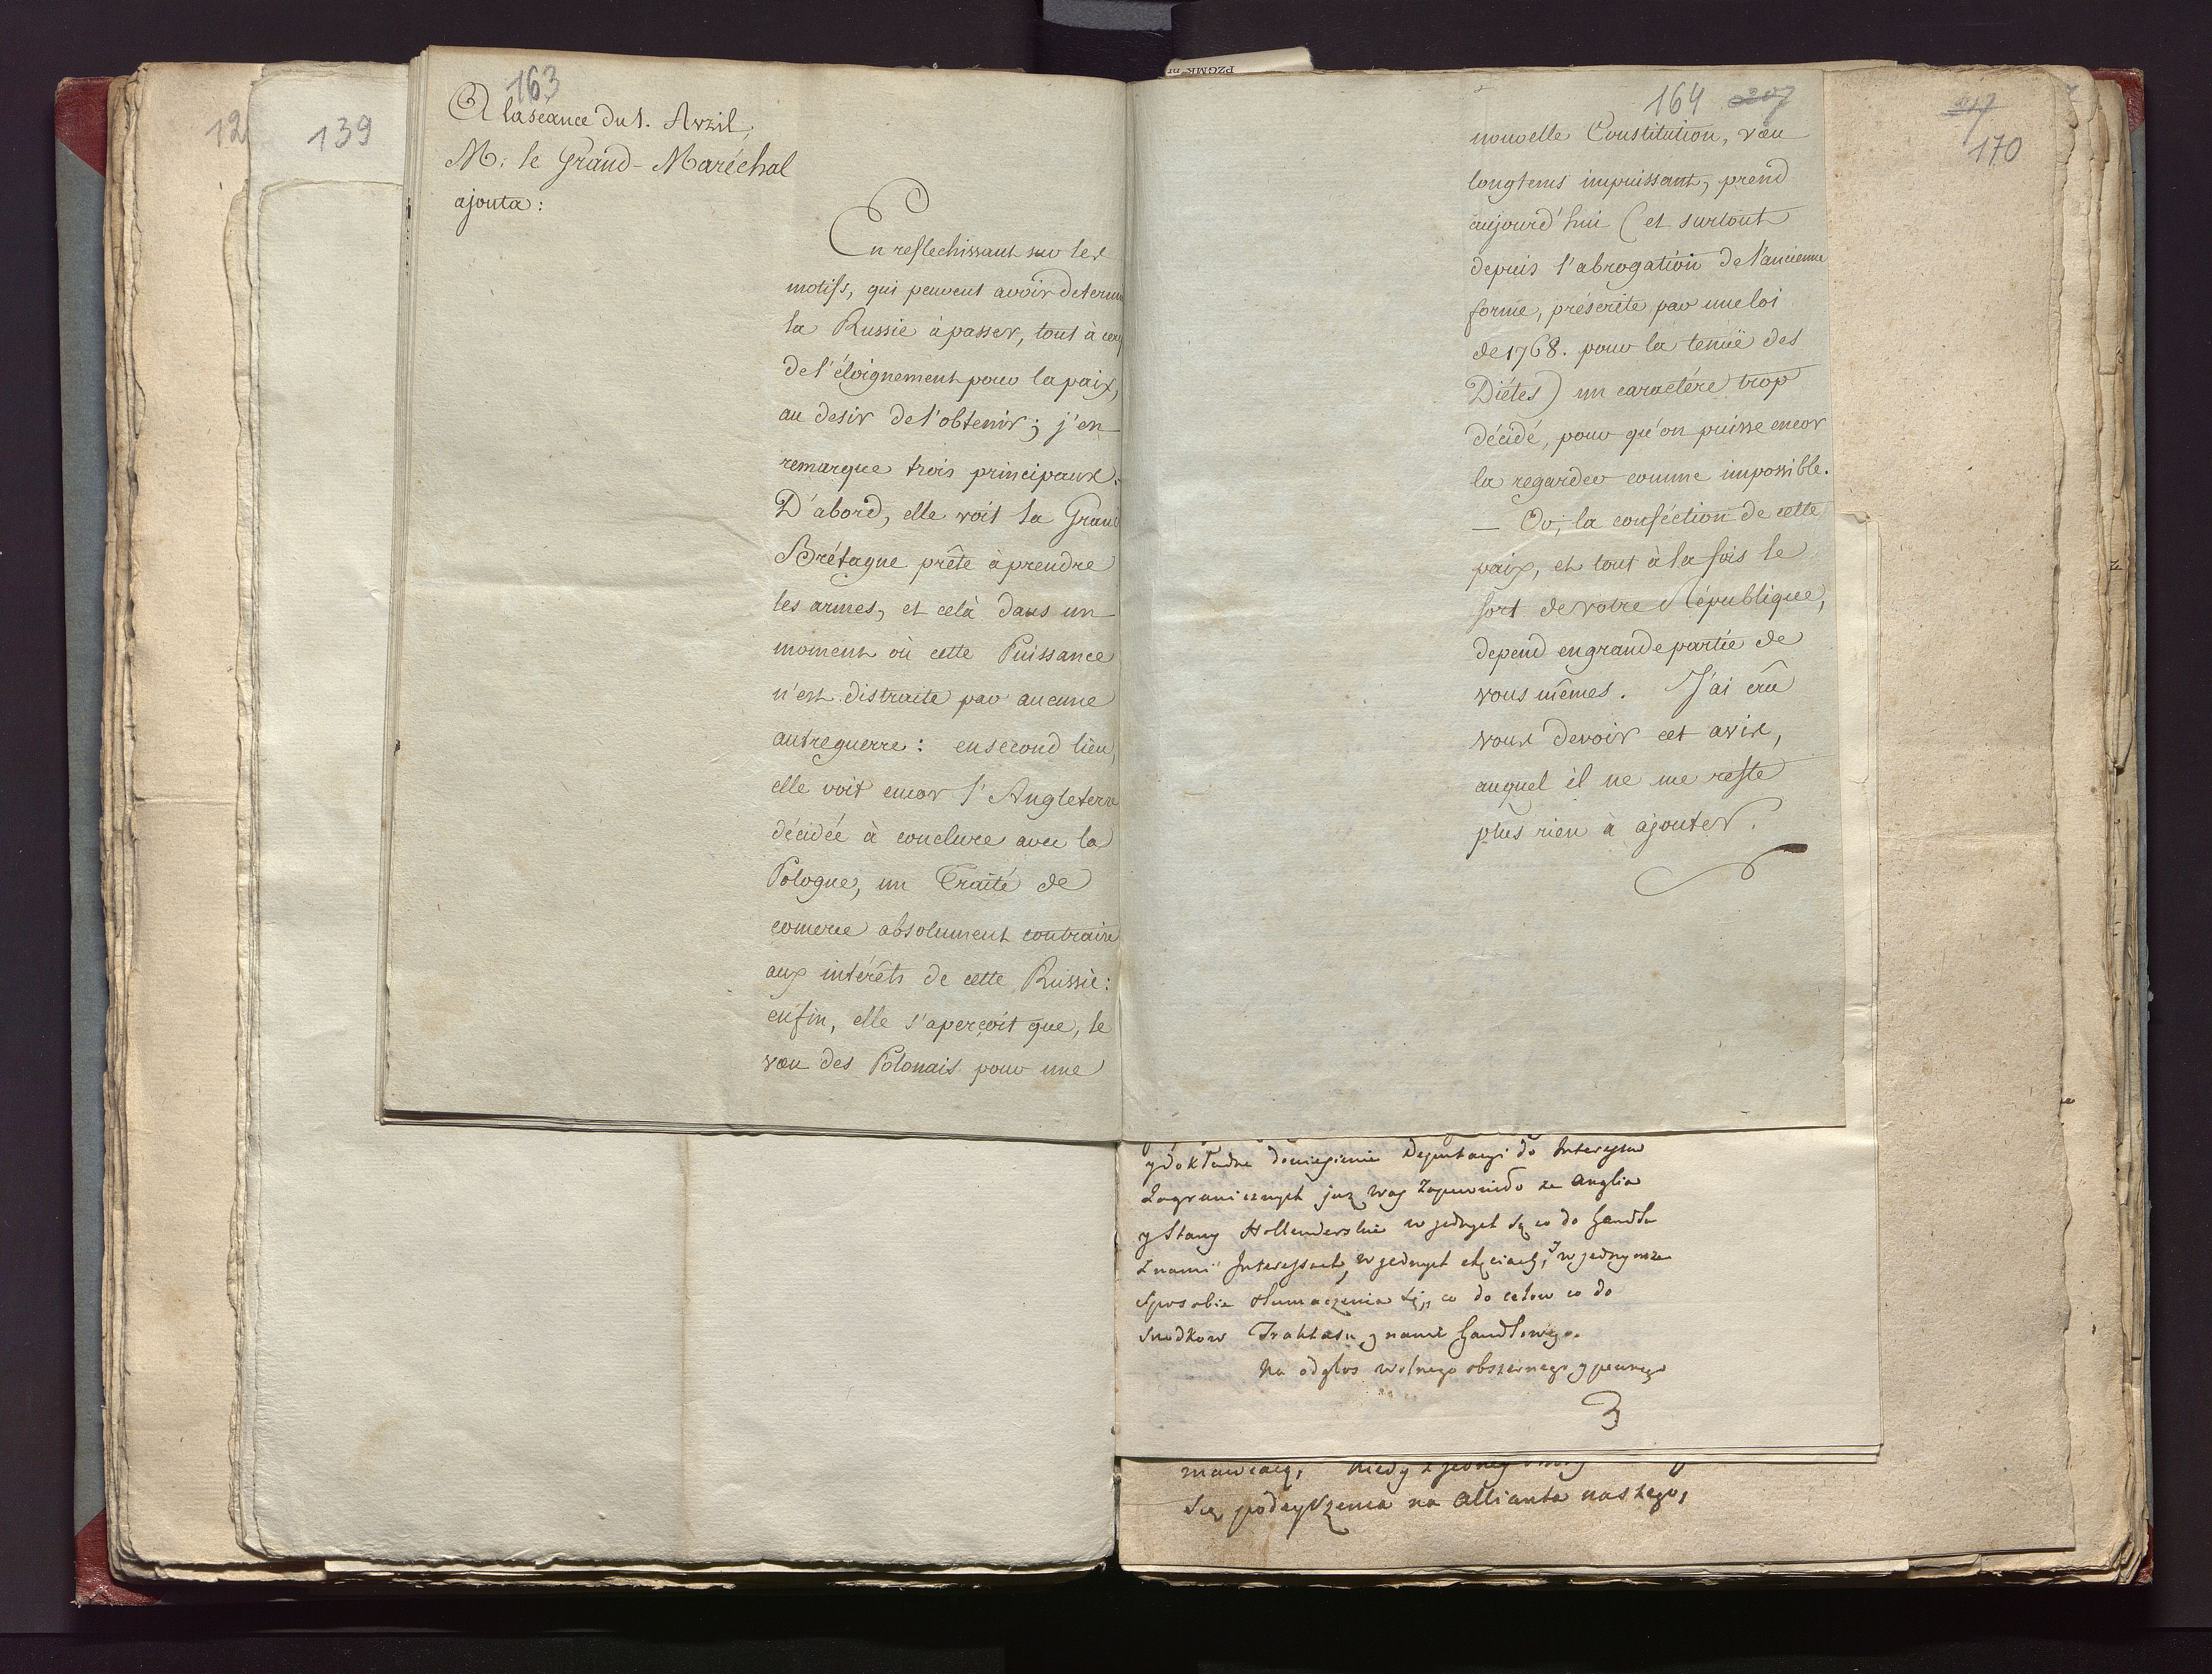 163
A la séance du 1. Avril,
M: le Grand-Maréchal
ajouta:
En reflechissant sur les
motifs, qui peuvent avoir determ
la Russie à passer, tout à cou
de l'éloignement pour la paix,
au desir de l'obtenir; j'en
remarque trois principaux:
D'abord, elle voit la Grand
Brétagne prête à prendre
les armes, et celà dans un
moment où cette Puissance
n'est distraite par aucune
autre guerre: en second lieu,
elle voit encor l'Angleterre
décidée à conclure avec la
Pologne, un Traité de
comerce absolument contraire
aux intérêts de cette Russie:
enfin, elle s'aperçoit que, le
vœu des Polonais pour une
12
139
164 207
nouvelle Constitution, vœu
longtems impuissant, prend
aujourd'hui (et surtout
depuis l'abrogation de l'ancienne
forme, préscrite par une loi
de 1768. pour la tenuë des
Diétes) un caractére trop
décidé, pour qu'on puisse encor
la regarder comme impossible.
— Or, la conféction de cette
paix, et tout à la fois le
sort de votre République,
depend en grande partie de
vous mêmes. J'ai crû
vous devoir cet avis,
auquel il ne me reste
plus rien à ajouter.
217
170
PZGMK nr
y dokładne doniesienie Deputacyi do Interesów
Zagranicznych juz was zapewniło ze Anglia
y Stany Hollenderskie w jednych są co do handlu
z nami Interessach, w jednych chęciach, w jednymze
sposobie tłumaczenia się, co do celow co do
srodkow Traktatu z nami handlowego.
Na odgłos wolnego obszernego y pewnego
3
mawiaią, kiedy z jedney
się podwyższenia na Allianta naszego,